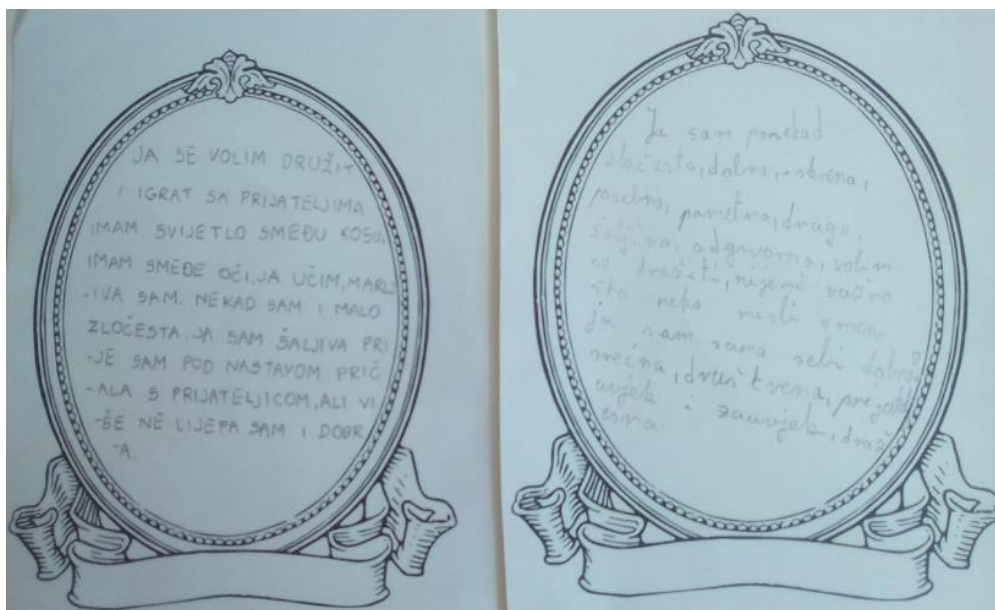 JA SE VOLIM DRUŽIT
I IGRAT SA PRIJATELJIMA
IMAM SVIJETLO SMEĐU KOSU,
IMAM SMEĐE OČI, JA UČIM, MARLJ
-IVA SAM. NEKAD SAM I MALO
ZLOČESTA. JA SAM ŠALJIVA PRI
-JE SAM POD NASTAVOM PRIČ
-ALA S PRIJATELJICOM, ALI VI
-ŠE NE. LIJEPA SAM I DOBR
-A.
Ja sam ponekad
zločesta, dobra, iskrena,
posebna, pametna, draga,
šaljiva, odgovorna, volim
se družiti, nije mi važno
što neko misli o meni
ja sam sama sebi dobra,
srećna, društvena, prijatelj
uvjek i zauvjek,